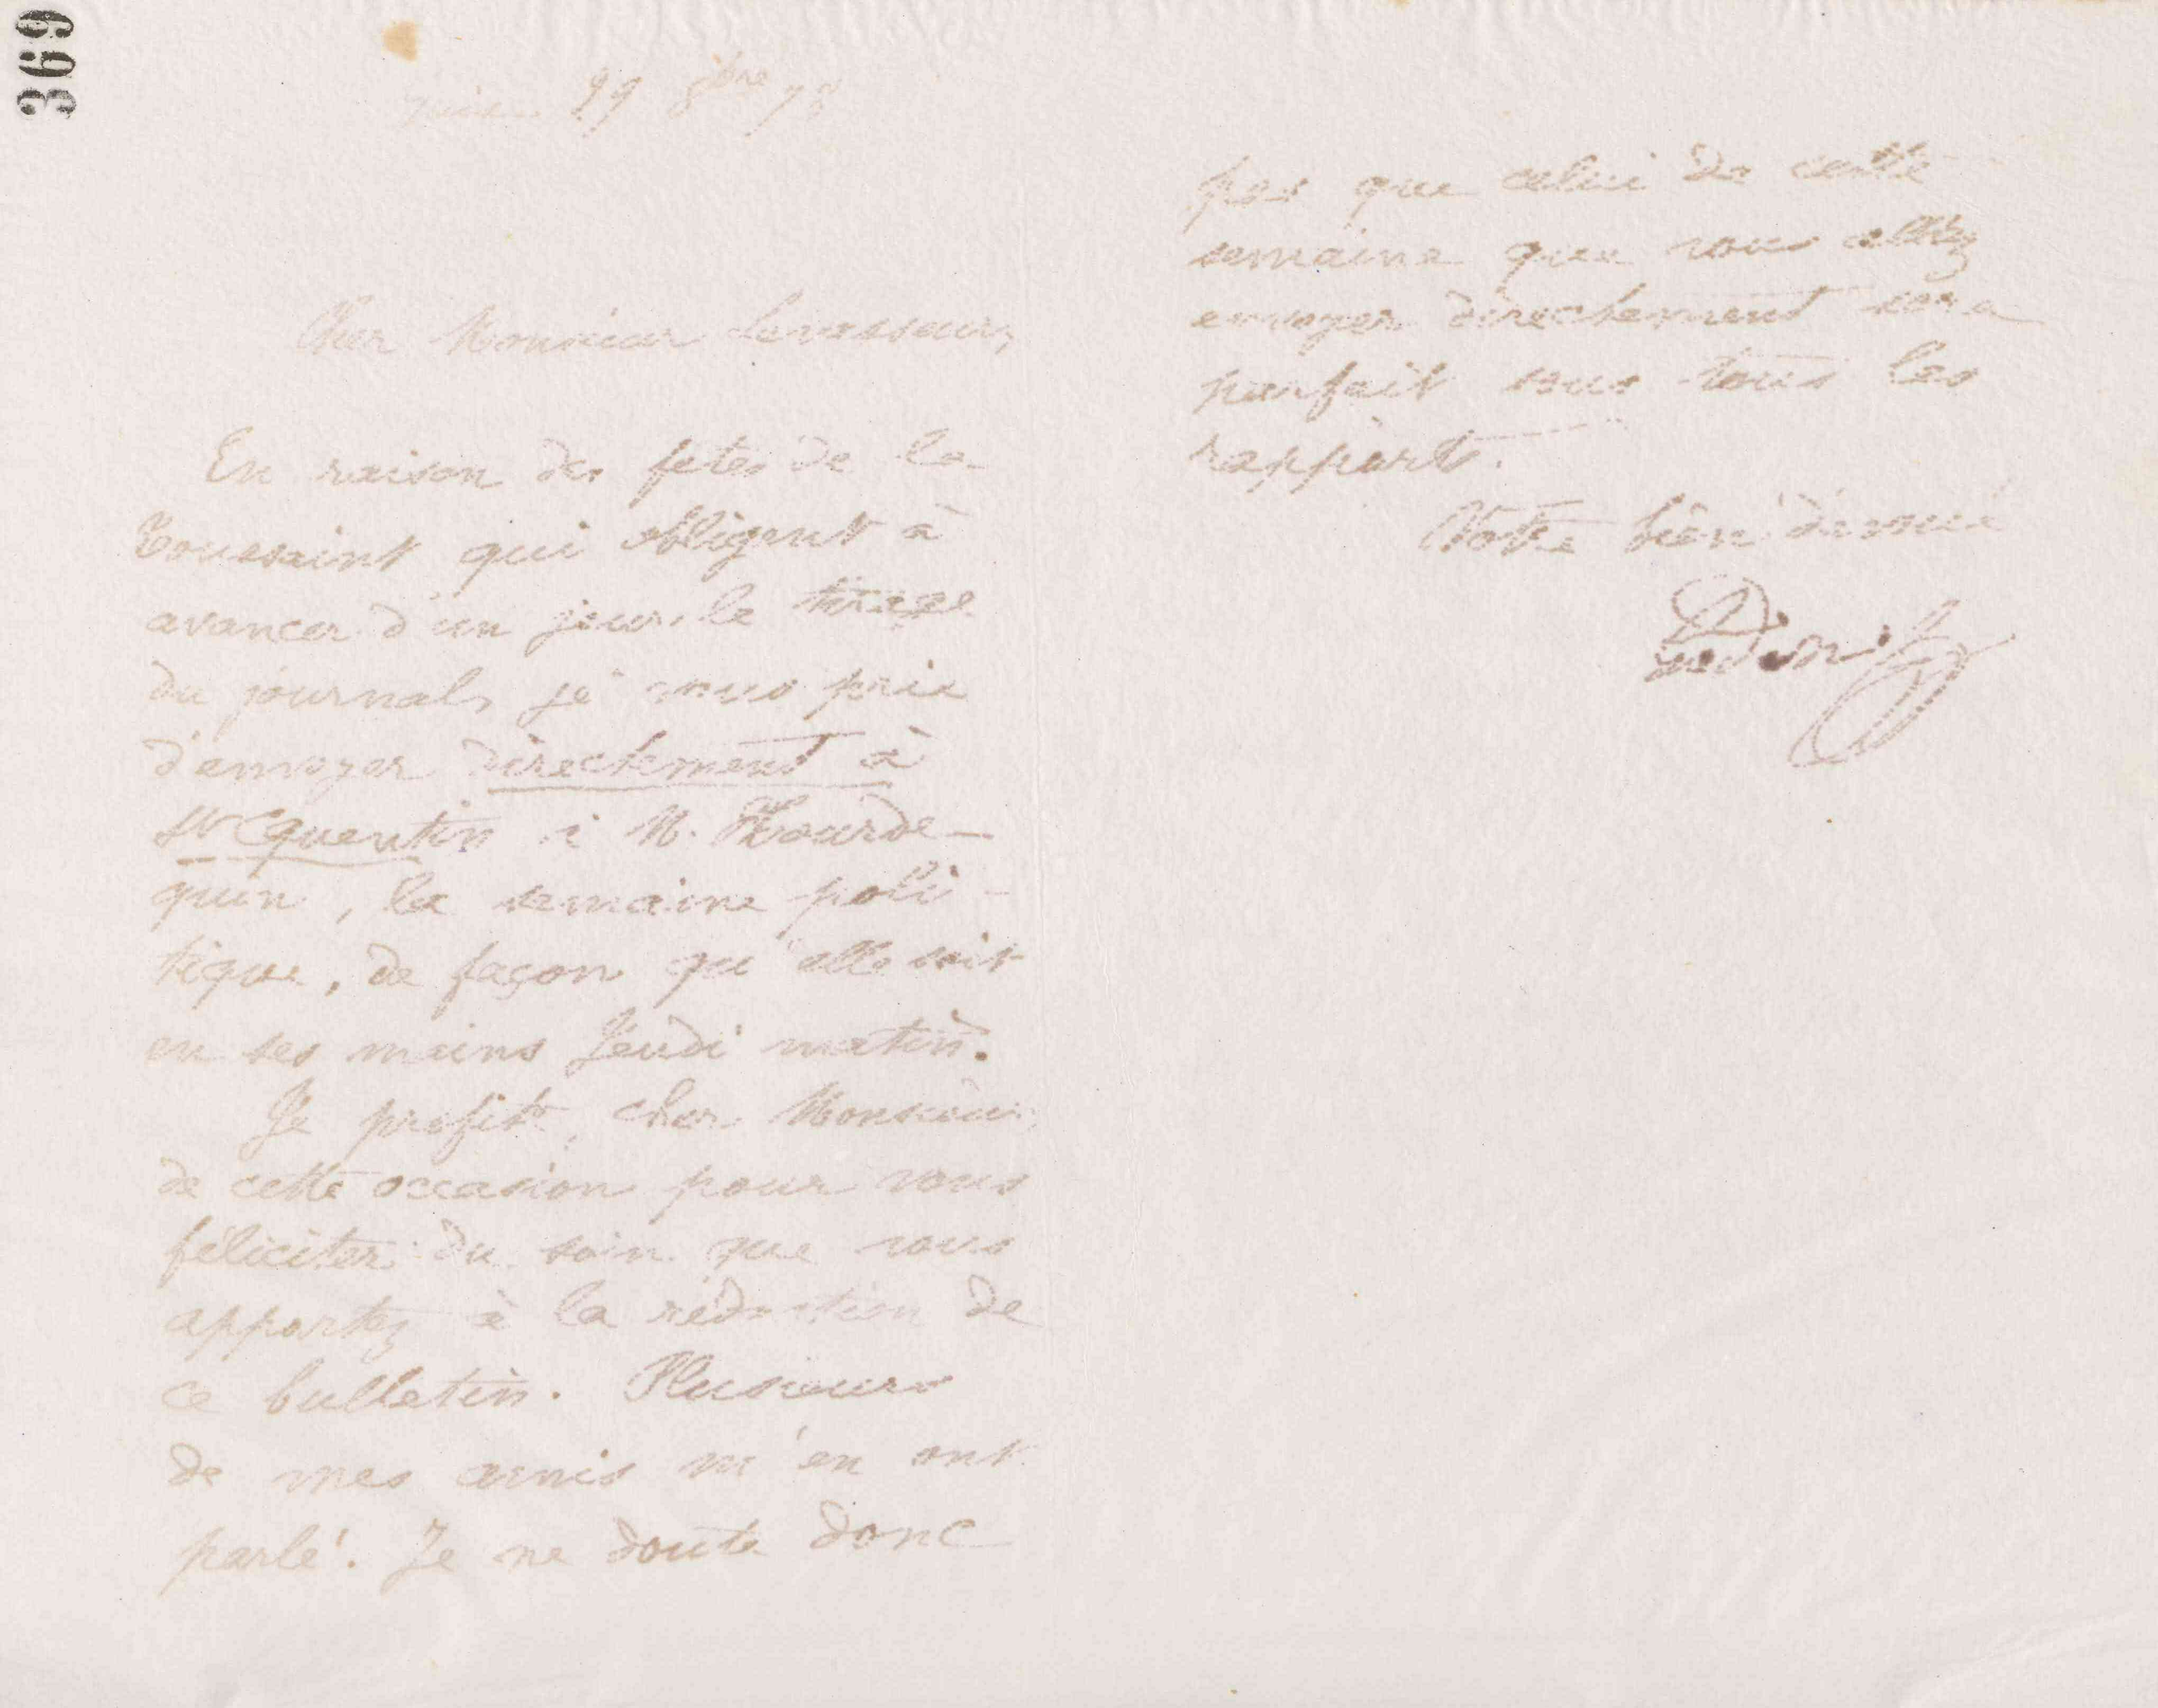 369
29 8bre 78
Cher Monsieur Levasseur,
En raison des fetes de la
Toussaint qui obligent à
avancer d'un jour le tirage
du journal, je vous prie
d'envoyer directement à
St Quentin à M. Hourde-
quin, la semaine poli-
tique, de façon qu'elle soit
en ses mains Jeudi matin.
Je profite, cher Monsieur
de cette occasion pour vous
féliciter du soin que vous
apportez à la rédaction de
ce bulletin. Plusieurs
de mes amis m'en ont
parlé. Je ne doute donc
pas que celui de cette
semaine que vous allez
envoyer directement sera
parfait sous tous les
rapports.
Votre bien dévoué